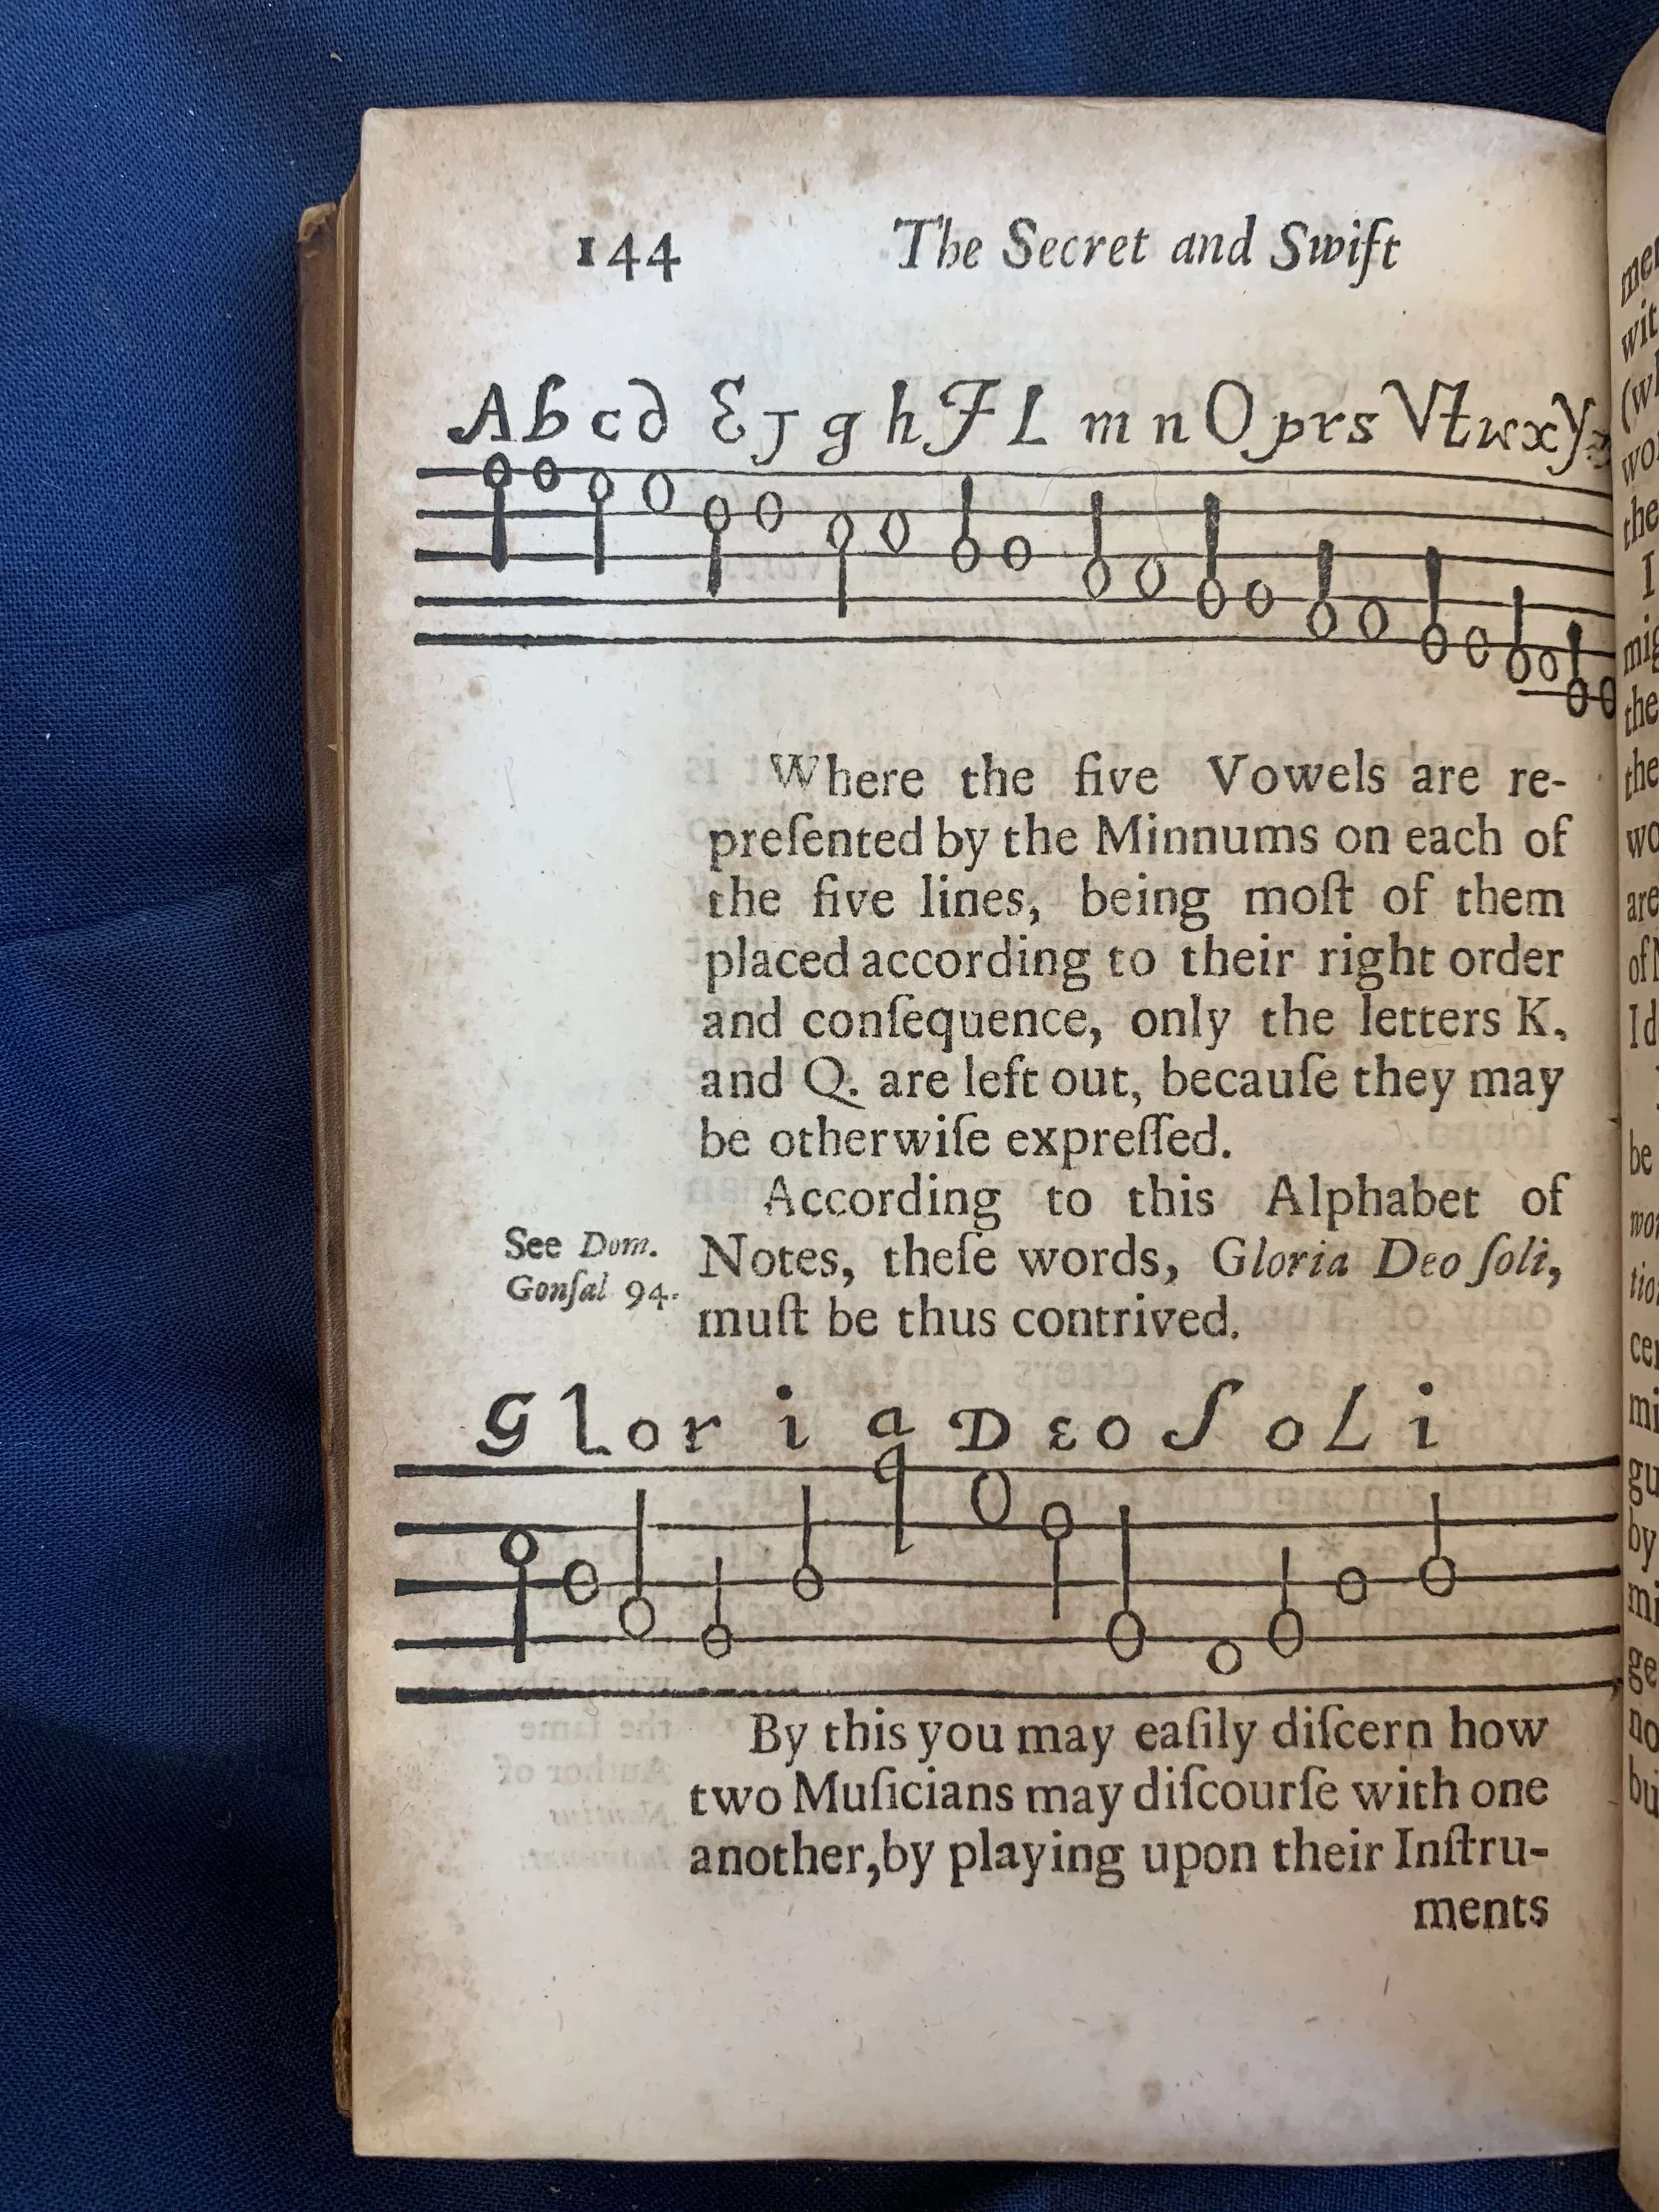 144 The Secret and Swift
A b c d E J g h F L m n O p r s V t w x y
Where the five Vowels are re-
preſented by the Minnums on each of
the five lines, being moſt of them
placed according to their right order
and conſequence, only the letters K.
and Q. are left out, becauſe they may
be otherwiſe expreſſed.
According to this Alphabet of
See Dom.
Gonſal 94.
Notes, theſe words, Gloria Deo ſoli,
muſt be thus contrived.
G l o r i a D e o S o L i
By this you may eaſily diſcern how
two Muſicians may diſcourſe with one
another,by playing upon their Inſtru-
ments